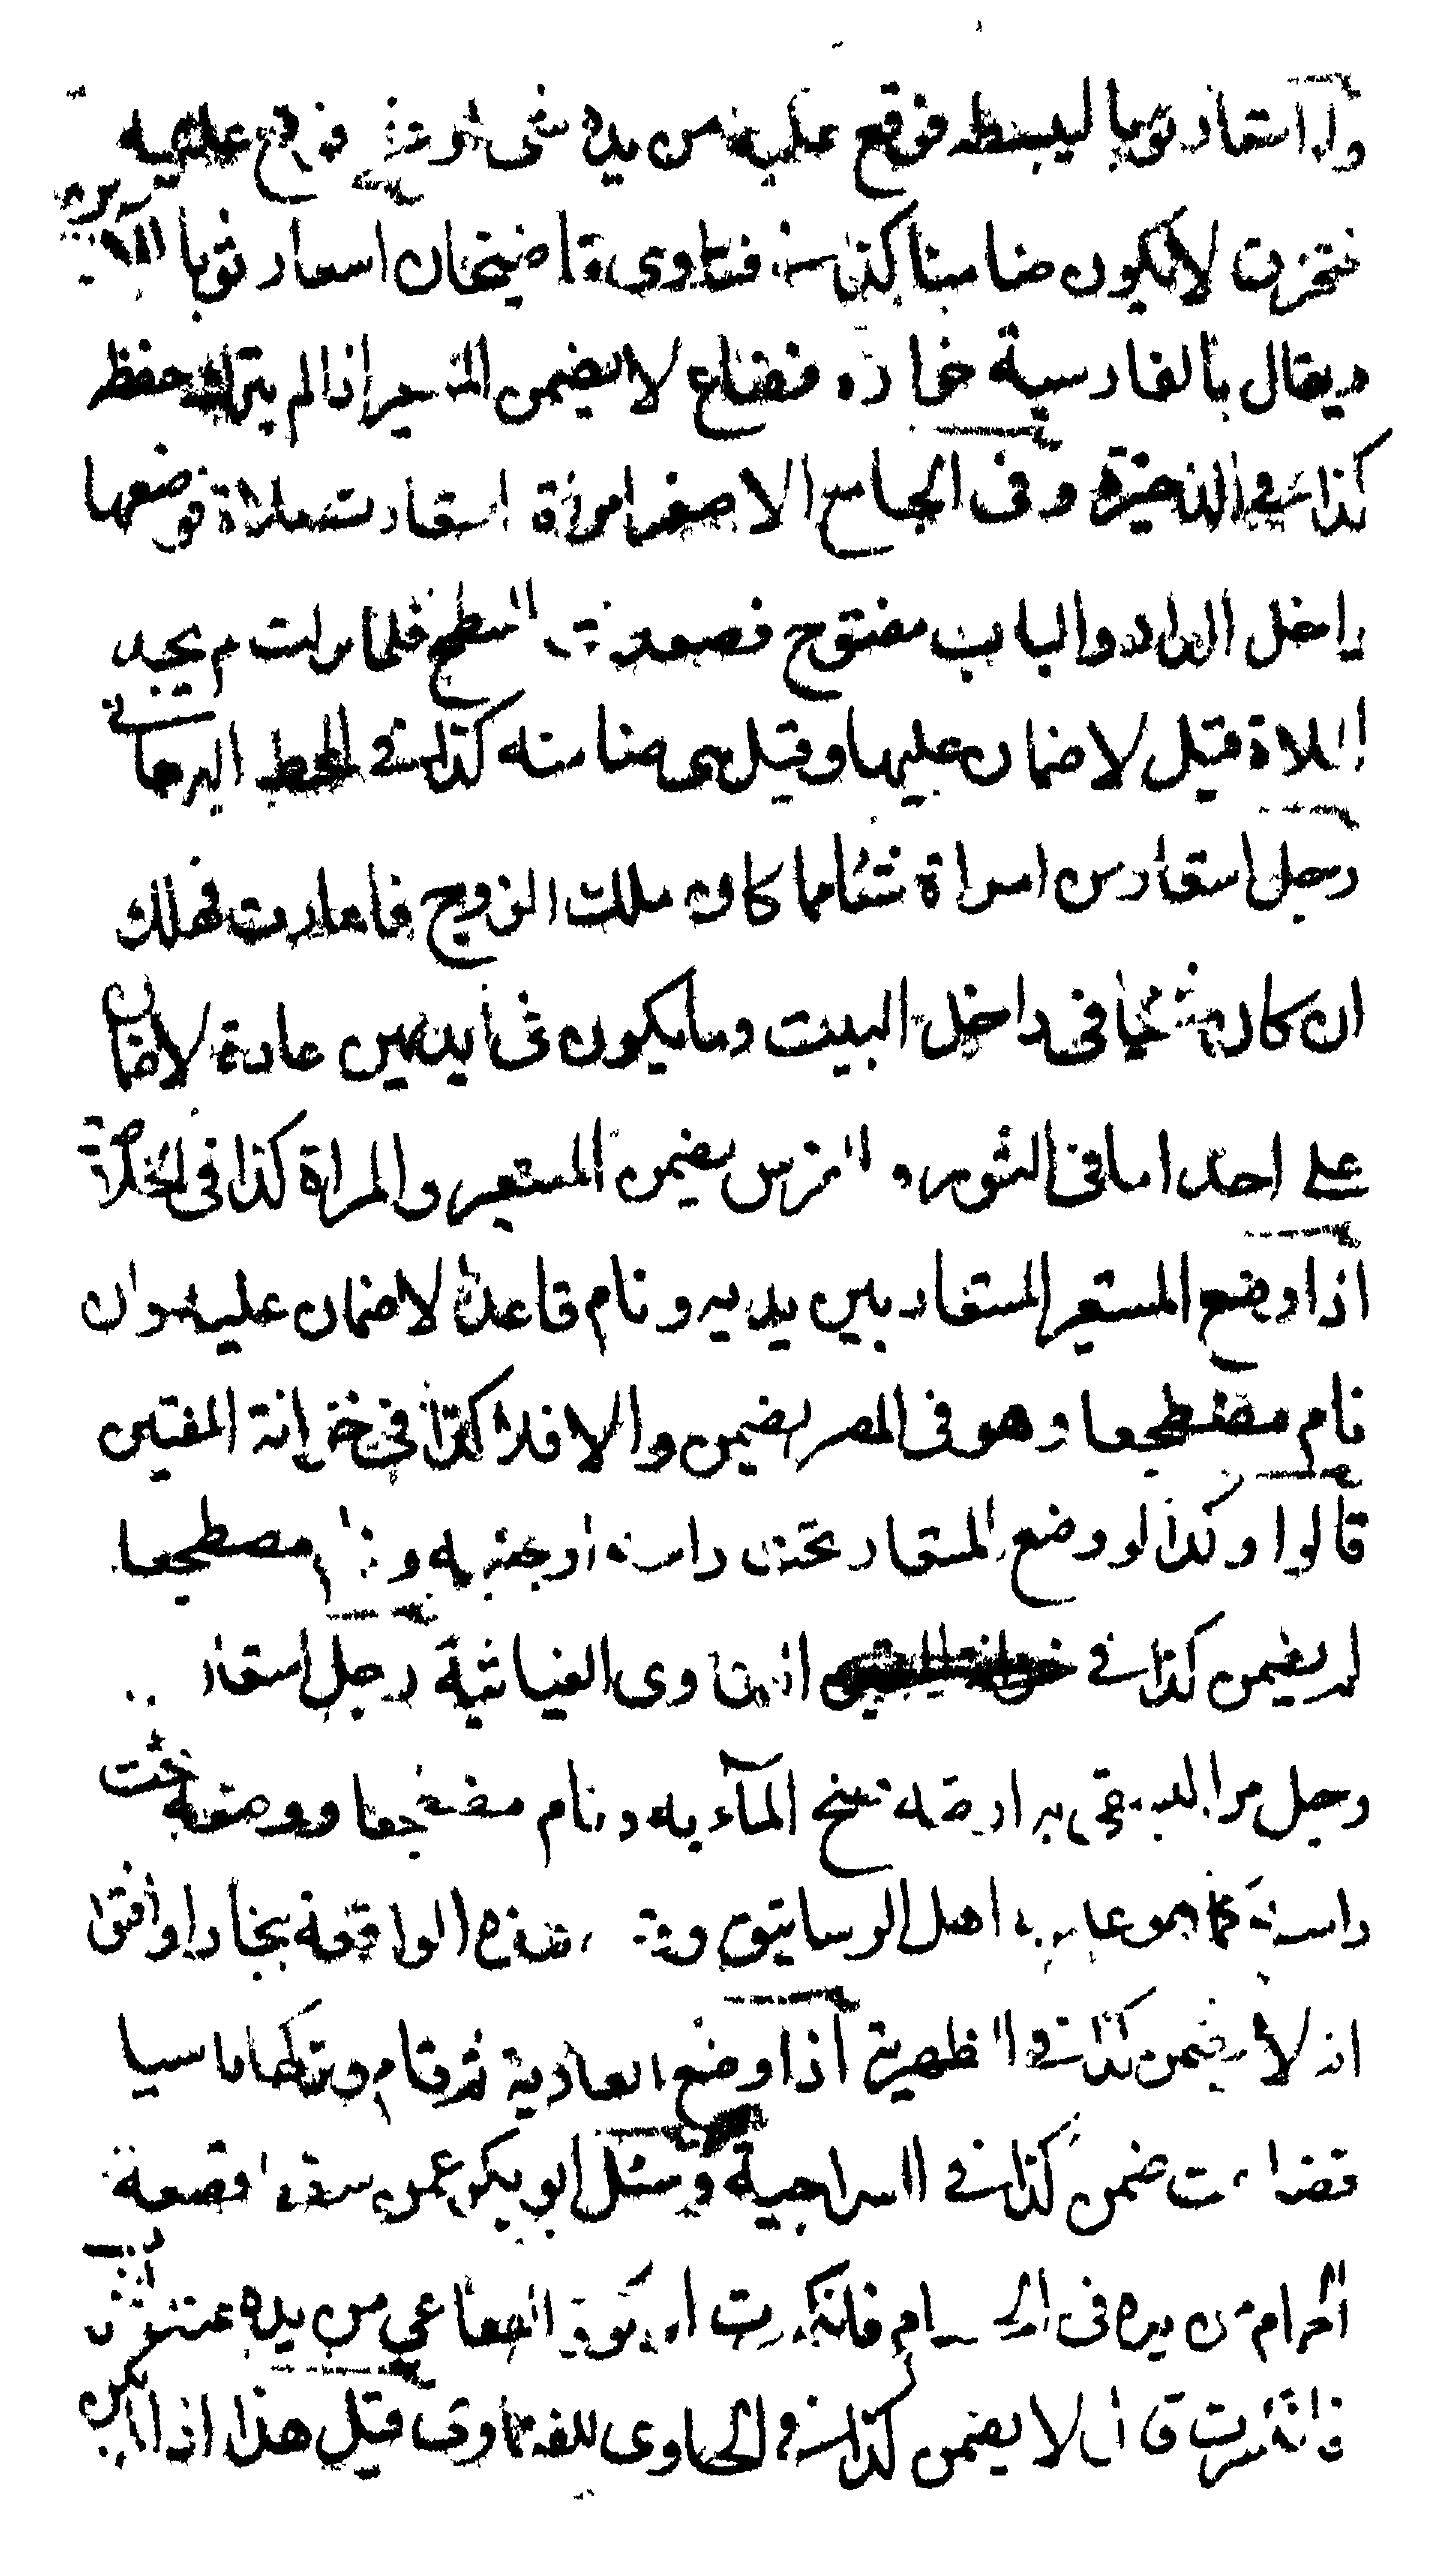 ولو استعار ثوبا ليبسطه فوقع عليه من يده شئ او عثر فوقع عليه
فتخرق لا يكون ضامنا كذا في فتاوى قاضيخان استعار ثوبا
ويقال بالفارسية خازه فضاع لا يضمن المستعير اذا لم يترك حفظه
كذا في الذخيرة وفى الجامع الاصغر امرأة استعارت ملاءة فوضعتها
داخل الدار والباب مفتوح فصعدت السطح فلما نزلت لم يجد
الملاة قيل لا ضمان عليها وقيل هى ضامنة كذا في المحيط البرهانى
رجل استعار من امراة شئا مما كان ملك الزوج فاعارت فهلك
ان كان شئا في داخل البيت وما يكون في ايديهن عادة لا ضمان
على احد اما في الثور والفرس يضمن المستعير والمراة كذا في الخلاصة
اذا وضع المستعير المستعار بين يديه ونام قاعدا لا ضمان عليه وان
نام مضطجعا وهو في المصر يضمن والا فلا كذا في خزانة المفتين
قالوا وكذا لو وضع المستعار تحت راسه او جنبه ونام مضطجعا
لم يضمن كذا في الفتاوى الغياثية رجل استعار
رجل مرا ليسقى به ارضه ففتح المآء به ونام مضطجعا ووضعه تحت
راسه كما هو عادة اهل الرساتيق وقعت هذه الواقعة ببخارا وافتوا
انه لا يضمن كذا في الظهيرية اذا وضع العارية ثم قام وتركها ناسيا
فضاعت ضمن كذا في السراجية وسئل ابو بكر عمن سقط قصعة
الحمام من يده في الحمام فانكسرت او كوز الفقاعى من يده عند
فانكسرت قال لا يضمن كذا في الحاوى للفتاوى قيل هذا اذا لم يكن